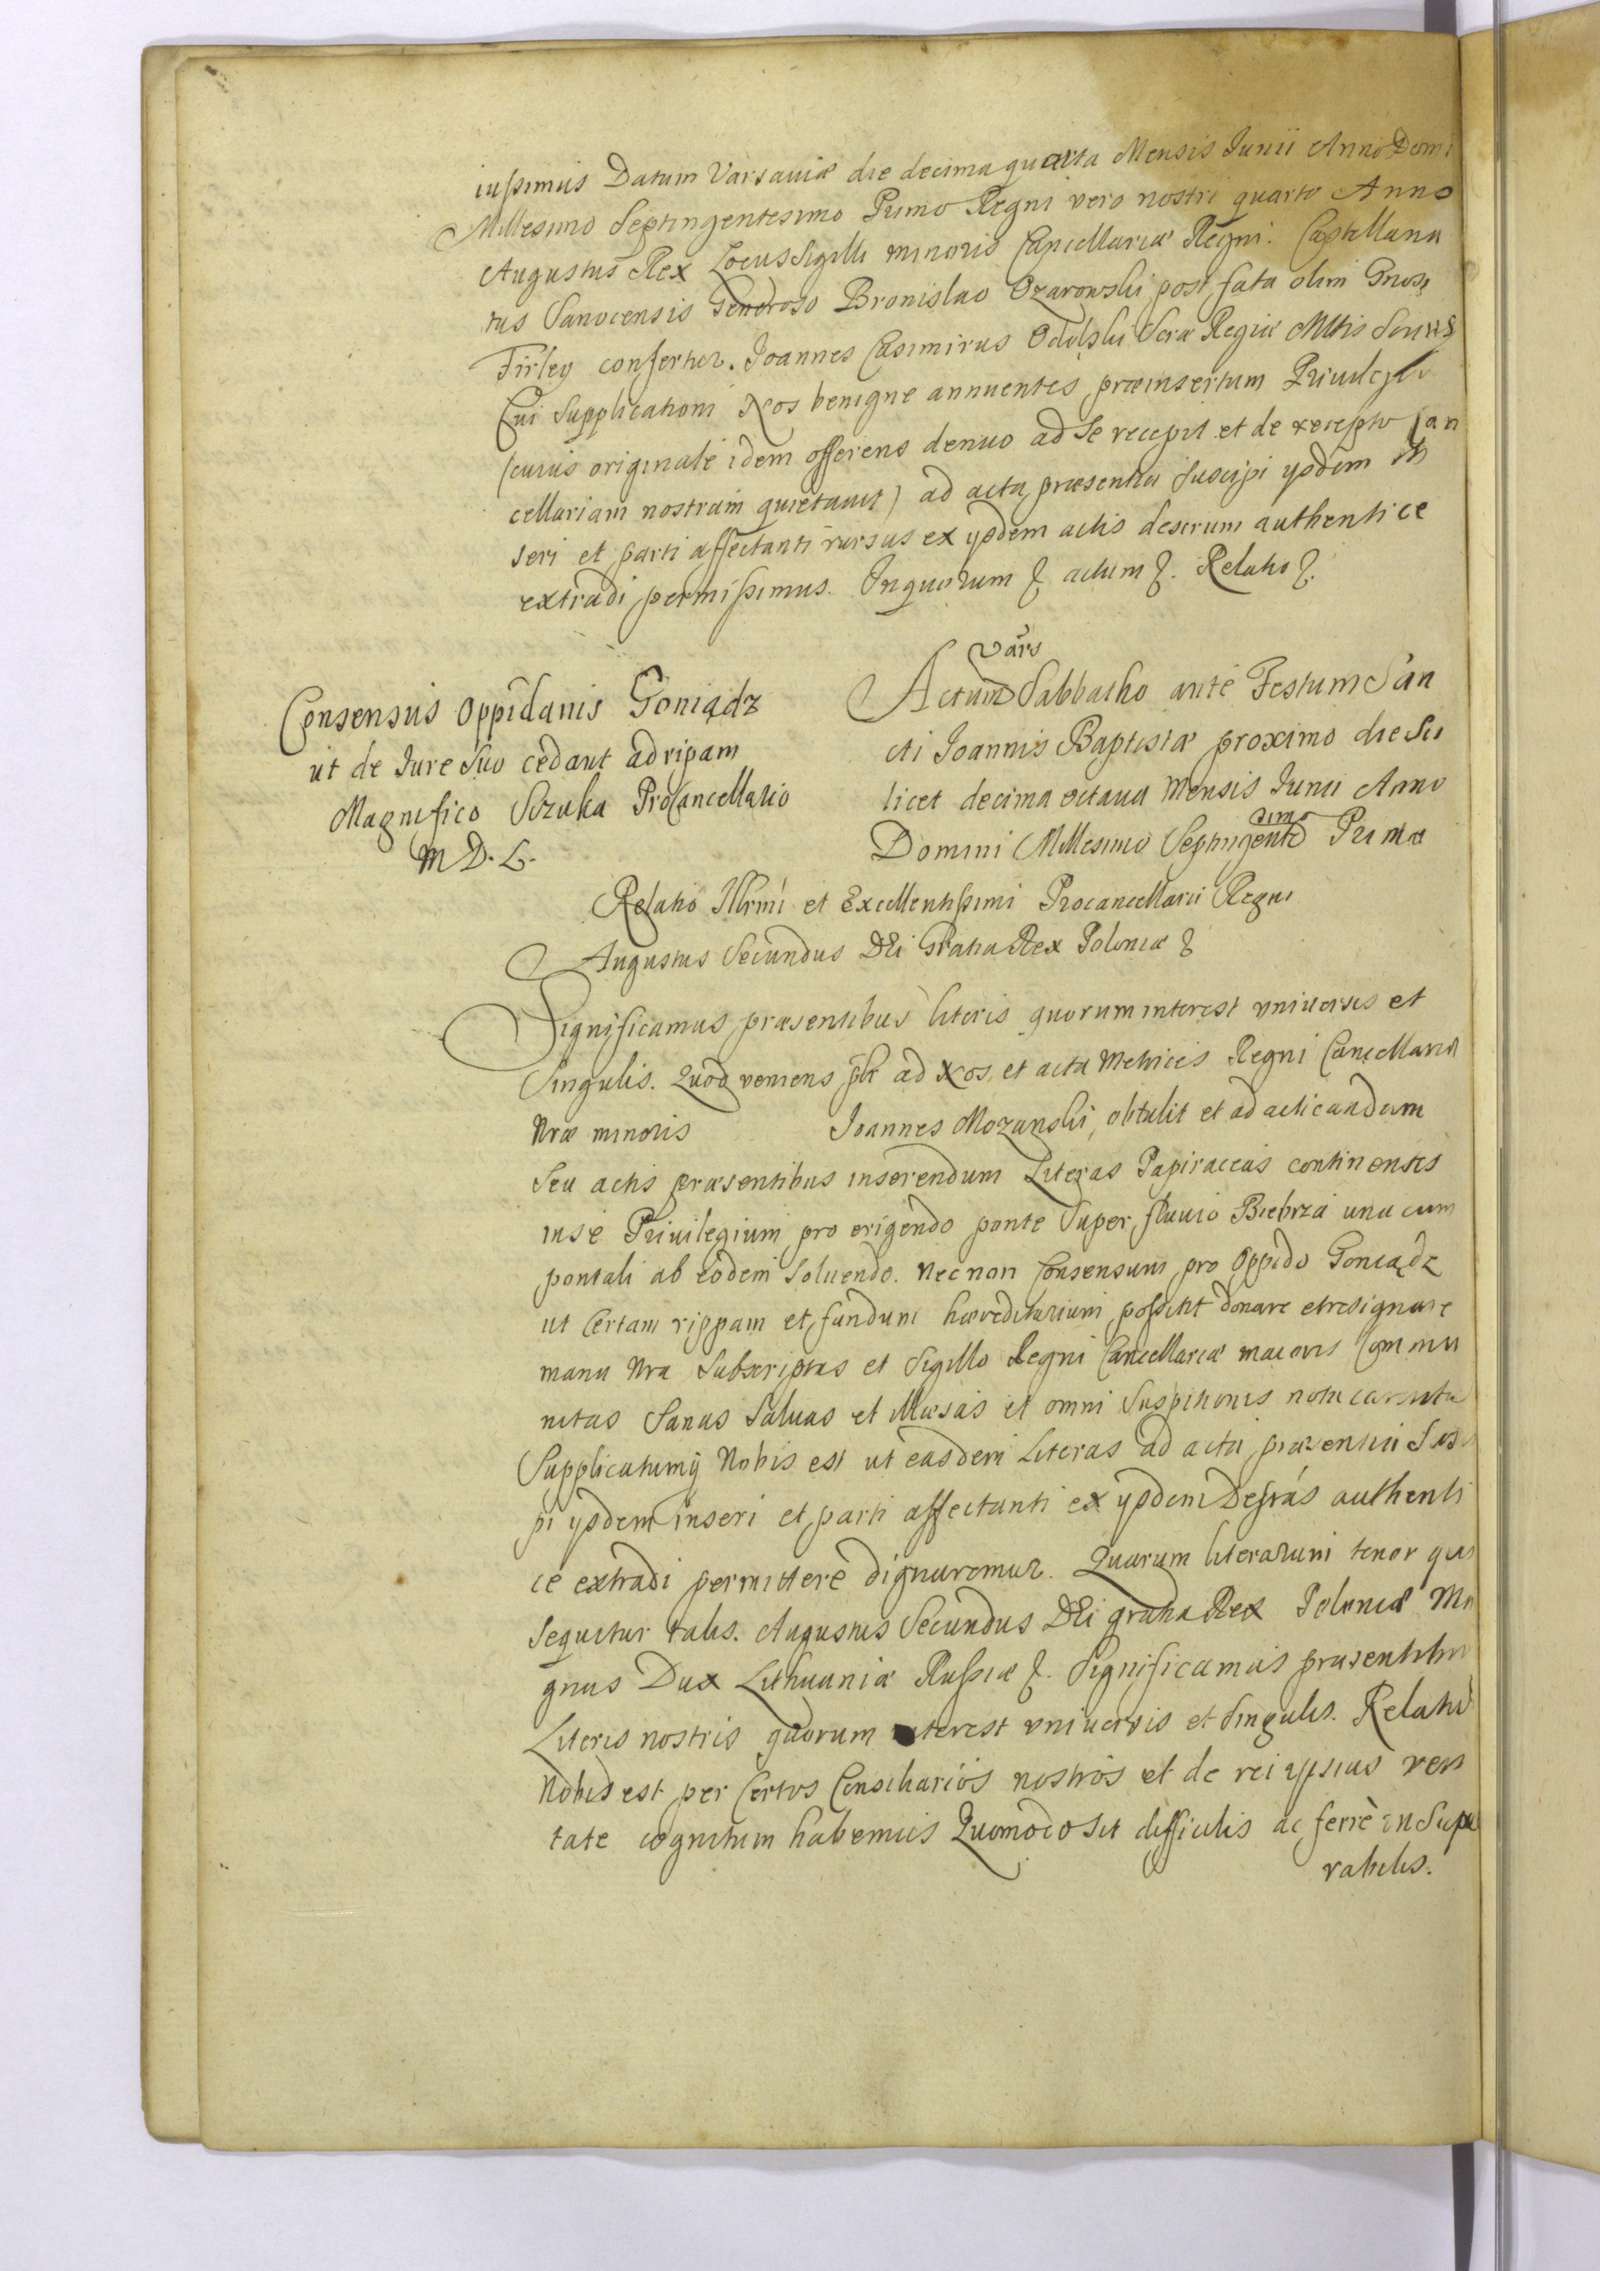 iussimus Datum Varsaviæ die decima quarta Mensis Junii Anno Domi
Millesimo Septingentesimo Primo Regni vero nostri quarto Anno
Augustus Rex Locus Sigilli minoris Cancellariæ Regni. Castellana
tus Sanocensis Generoso Bronislao Ozarowski post fata olim Gnosi
Firley confertur. Joannes Casimirus Sacræ Regiæ Mttis
Cui Supplicationi Nos benigne annuentes præinsertum
(cuius originale idem offerens denuo ad Se recepit et de recepto Can
cellariam nostram quietavit) ad acta præsentia suscipi ysdem in
seri et parti affectanti rursus ex ysdem actis descrum authentice
extradi permissimus. Inquorum & actum &. Relatio &.
Consensus Oppidanis Goniądz
ut de Jure Suo cedant ad ripam
Magnifico Sczuka Procancellario
M D. L.
Vars
Actum Sabbatho ante Festum San
cti Joannis Baptistæ proximo die Sci
licet decima octava Mensis Junii Anno
Domini Millesimo Septingente simo Primo
Relatio Illrmi et Excellentissimi Procancellarii Regni
Augustus Secundus DEi Gratia Rex Poloniæ &
Significamus præsentibus literis quorum interest universis et
Singulis. Quod veniens ad Nos et acta Metrices Regni Cancellariæ
Nræ minoris Joannes Mozanski, obtulit et ad acticandum
Seu actis præsentibus inserendum Literas Papiraceas continentes
in se Privilegium pro erigendo ponte Super fluvio Biebrza una cum
pontali ab eodem solvendo. Nec non Consensum pro Oppido Goniądz
ut Certam rippam et fundum hæreditarium possint donare et resignare
manu Nra Subscriptas et Sigillo Regni Cancellariæ maioris Commu
nitas Sanas Salvas et illæsas et omni Suspitionis nota carentes
Supplicatumq Nobis est ut easdem Literas ad acta præsentia Susci
pi ysdem inseri et parti affectanti ex ysdem Descrás authenti
ce extradi permittere dignaremur. Quarum literarum tenor
Sequitur talis. Augustus Secundus DEi gratia Rex Poloniæ Ma
gnus Dux Lithuaniæ Russiæ &. Significamus præsentibus
Literis nostris quorum interest universis et Singulis. Relatu
Nobis est per Certos Consiliarios nostros et de rei ipsius veri
tate cognitum habemus Quomodo sit difficilis ac ferrè in Supe
rabilis.